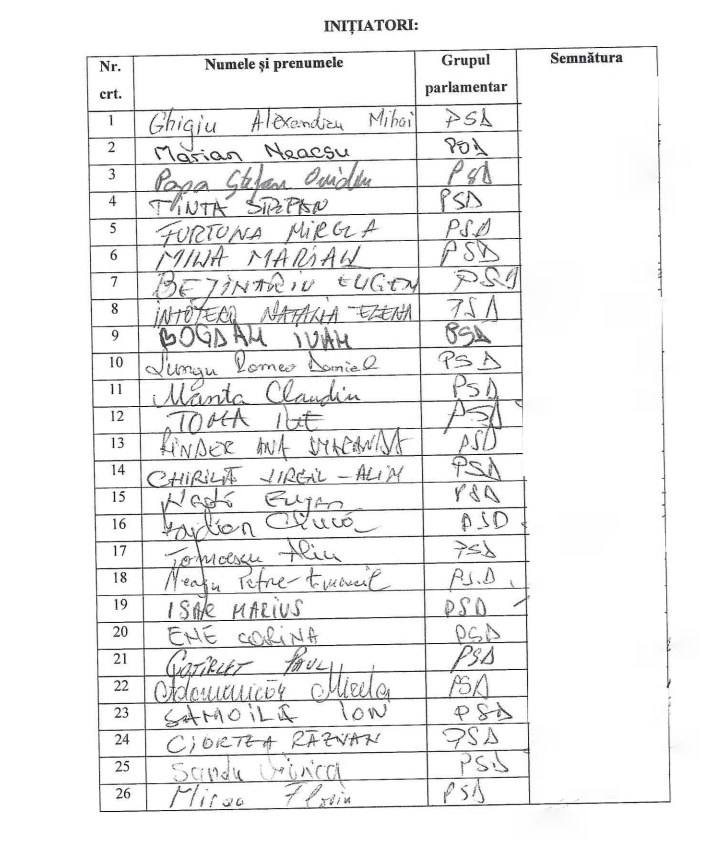 INIȚIATORI:
Nr. crt. Numele și prenumele Grupul parlamentar Semnătura
1 Ghigiu Alexandru Mihai PSD
2 Marian Neacsu PSD
3 Popa Ștefan Ovidiu PSD
4 TINTĂ STEPAN PSD
5 FURTUNA MIRELA PSD
6 MINA MARIAN PSD
7 BEJINARIU EUGEN PSD
8 INTOTERO NATALIA ELENA PSD
9 BOGDAN IVAN PSD
10 Lungu Romeo Daniel PSD
11 Manta Claudiu PSD
12 TOMA ILIE PSD
13 ANA SMARANDA PSD
14 CHIRILĂ VIRGIL-ALIN PSD
15 PSD
16 PSD
17 Tomoescu Aliu PSD
18 Neagu Petre-Emanoil PSD
19 ISAR MARIUS PSD
20 ENE CORINA PSD
21 PAUL PSD
22 Adomnicăi Mirela PSD
23 SAMOILĂ ION PSD
24 CIORTEA RĂZVAN PSD
25 Sandu Viorica PSD
26 Mircea Florin PSD